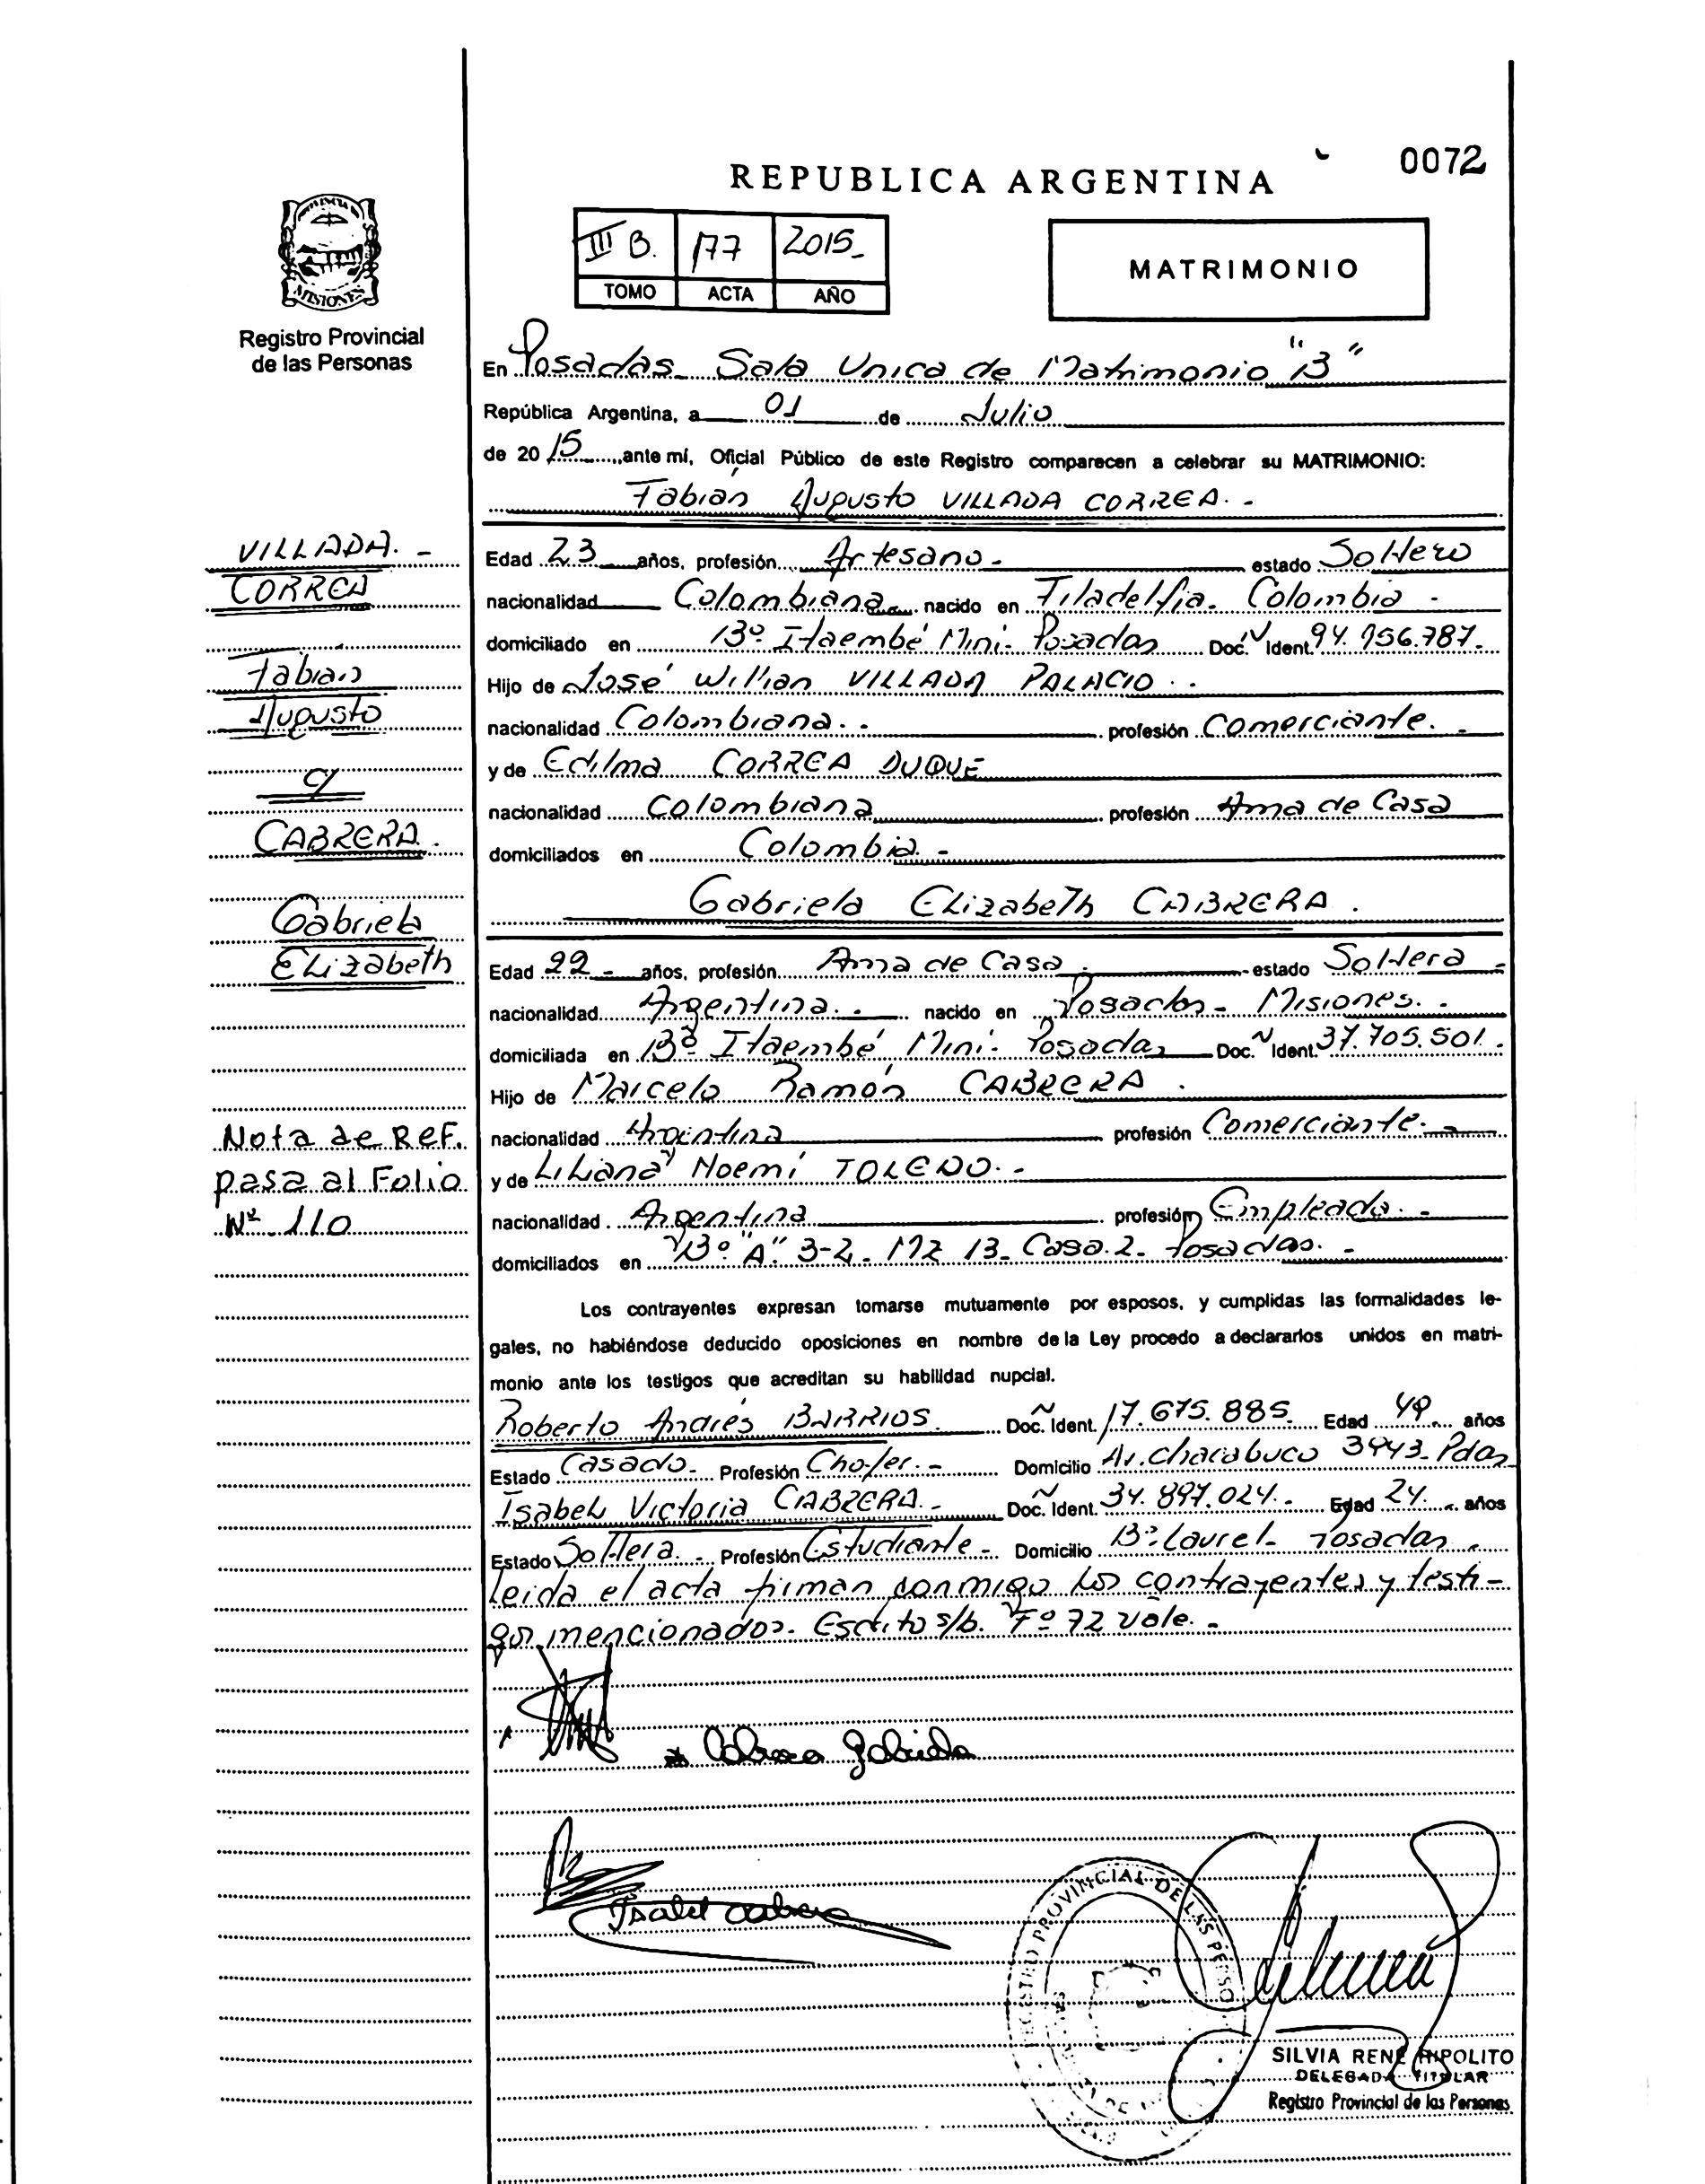 REPUBLICA ARGENTINA
0072
PROVINCIA DE
MISIONES
Registro Provincial
de las Personas
III B. 177 2015
TOMO ACTA AÑO
MATRIMONIO
En Posadas Sala Unica de Matrimonio "B"
República Argentina, a 01 de Julio
de 2015 ante mí, Oficial Público de este Registro comparecen a celebrar su MATRIMONIO:
Fabián Augusto VILLADA CORREA.-
VILLADA.-
CORREA
Fabian
Augusto
c/
CABRERA.
Gabriela
Elizabeth
Nota de Ref.
pasa al Folio
Nº 110
Edad 23 años, profesión Artesano.- estado Soltero
nacionalidad Colombiana nacido en Filadelfia. Colombia.-
domiciliado en Bº. Itaembé Mini- Posadas Doc. Ident. 94.956.787.-
Hijo de José Willian VILLADA PALACIO.-
nacionalidad Colombiana.- profesión Comerciante.-
y de Edilma CORREA DUQUE
nacionalidad Colombiana profesión Ama de Casa
domiciliados en Colombia.-
Gabriela Elizabeth CABRERA.
Edad 22- años, profesión Ama de Casa. estado Soltera-
nacionalidad Argentina.- nacido en Posadas- Misiones.-
domiciliada en Bº Itaembé Mini- Posadas Doc. Ident. 37.705.501.
Hijo de Marcelo Ramón CABRERA.
nacionalidad Argentina profesión Comerciante.-
y de Liliana Noemí TOLEDO.-
nacionalidad Argentina profesión Empleada.-
domiciliados en Bº "A" 3-2- MZ 13- Casa.2- Posadas.-
Los contrayentes expresan tomarse mutuamente por esposos, y cumplidas las formalidades le-
gales, no habiéndose deducido oposiciones en nombre de la Ley procedo a declararlos unidos en matri-
monio ante los testigos que acreditan su habilidad nupcial.
Roberto Andrés BARRIOS. Doc. Ident. 17.675.885. Edad 49 años
Estado Casado.- Profesión Chofer.- Domicilio Av. Chacabuco 3443- Pdas
Isabel Victoria CABRERA.- Doc. Ident. 34.897.024.- Edad 24. años
Estado Soltera.- Profesión Estudiante- Domicilio Bº Laurel- Posadas.
Leida el acta firman conmigo los contrayentes y testi-
gos mencionados. Escrito s/b. Fº 72 vale.-
Cabrera Gabriela
Isabel Cabrera
REGISTRO PROVINCIAL DE LAS PERSO
SILVIA RENE HIPOLITO
DELEGADA TITULAR
Registro Provincial de las Personas